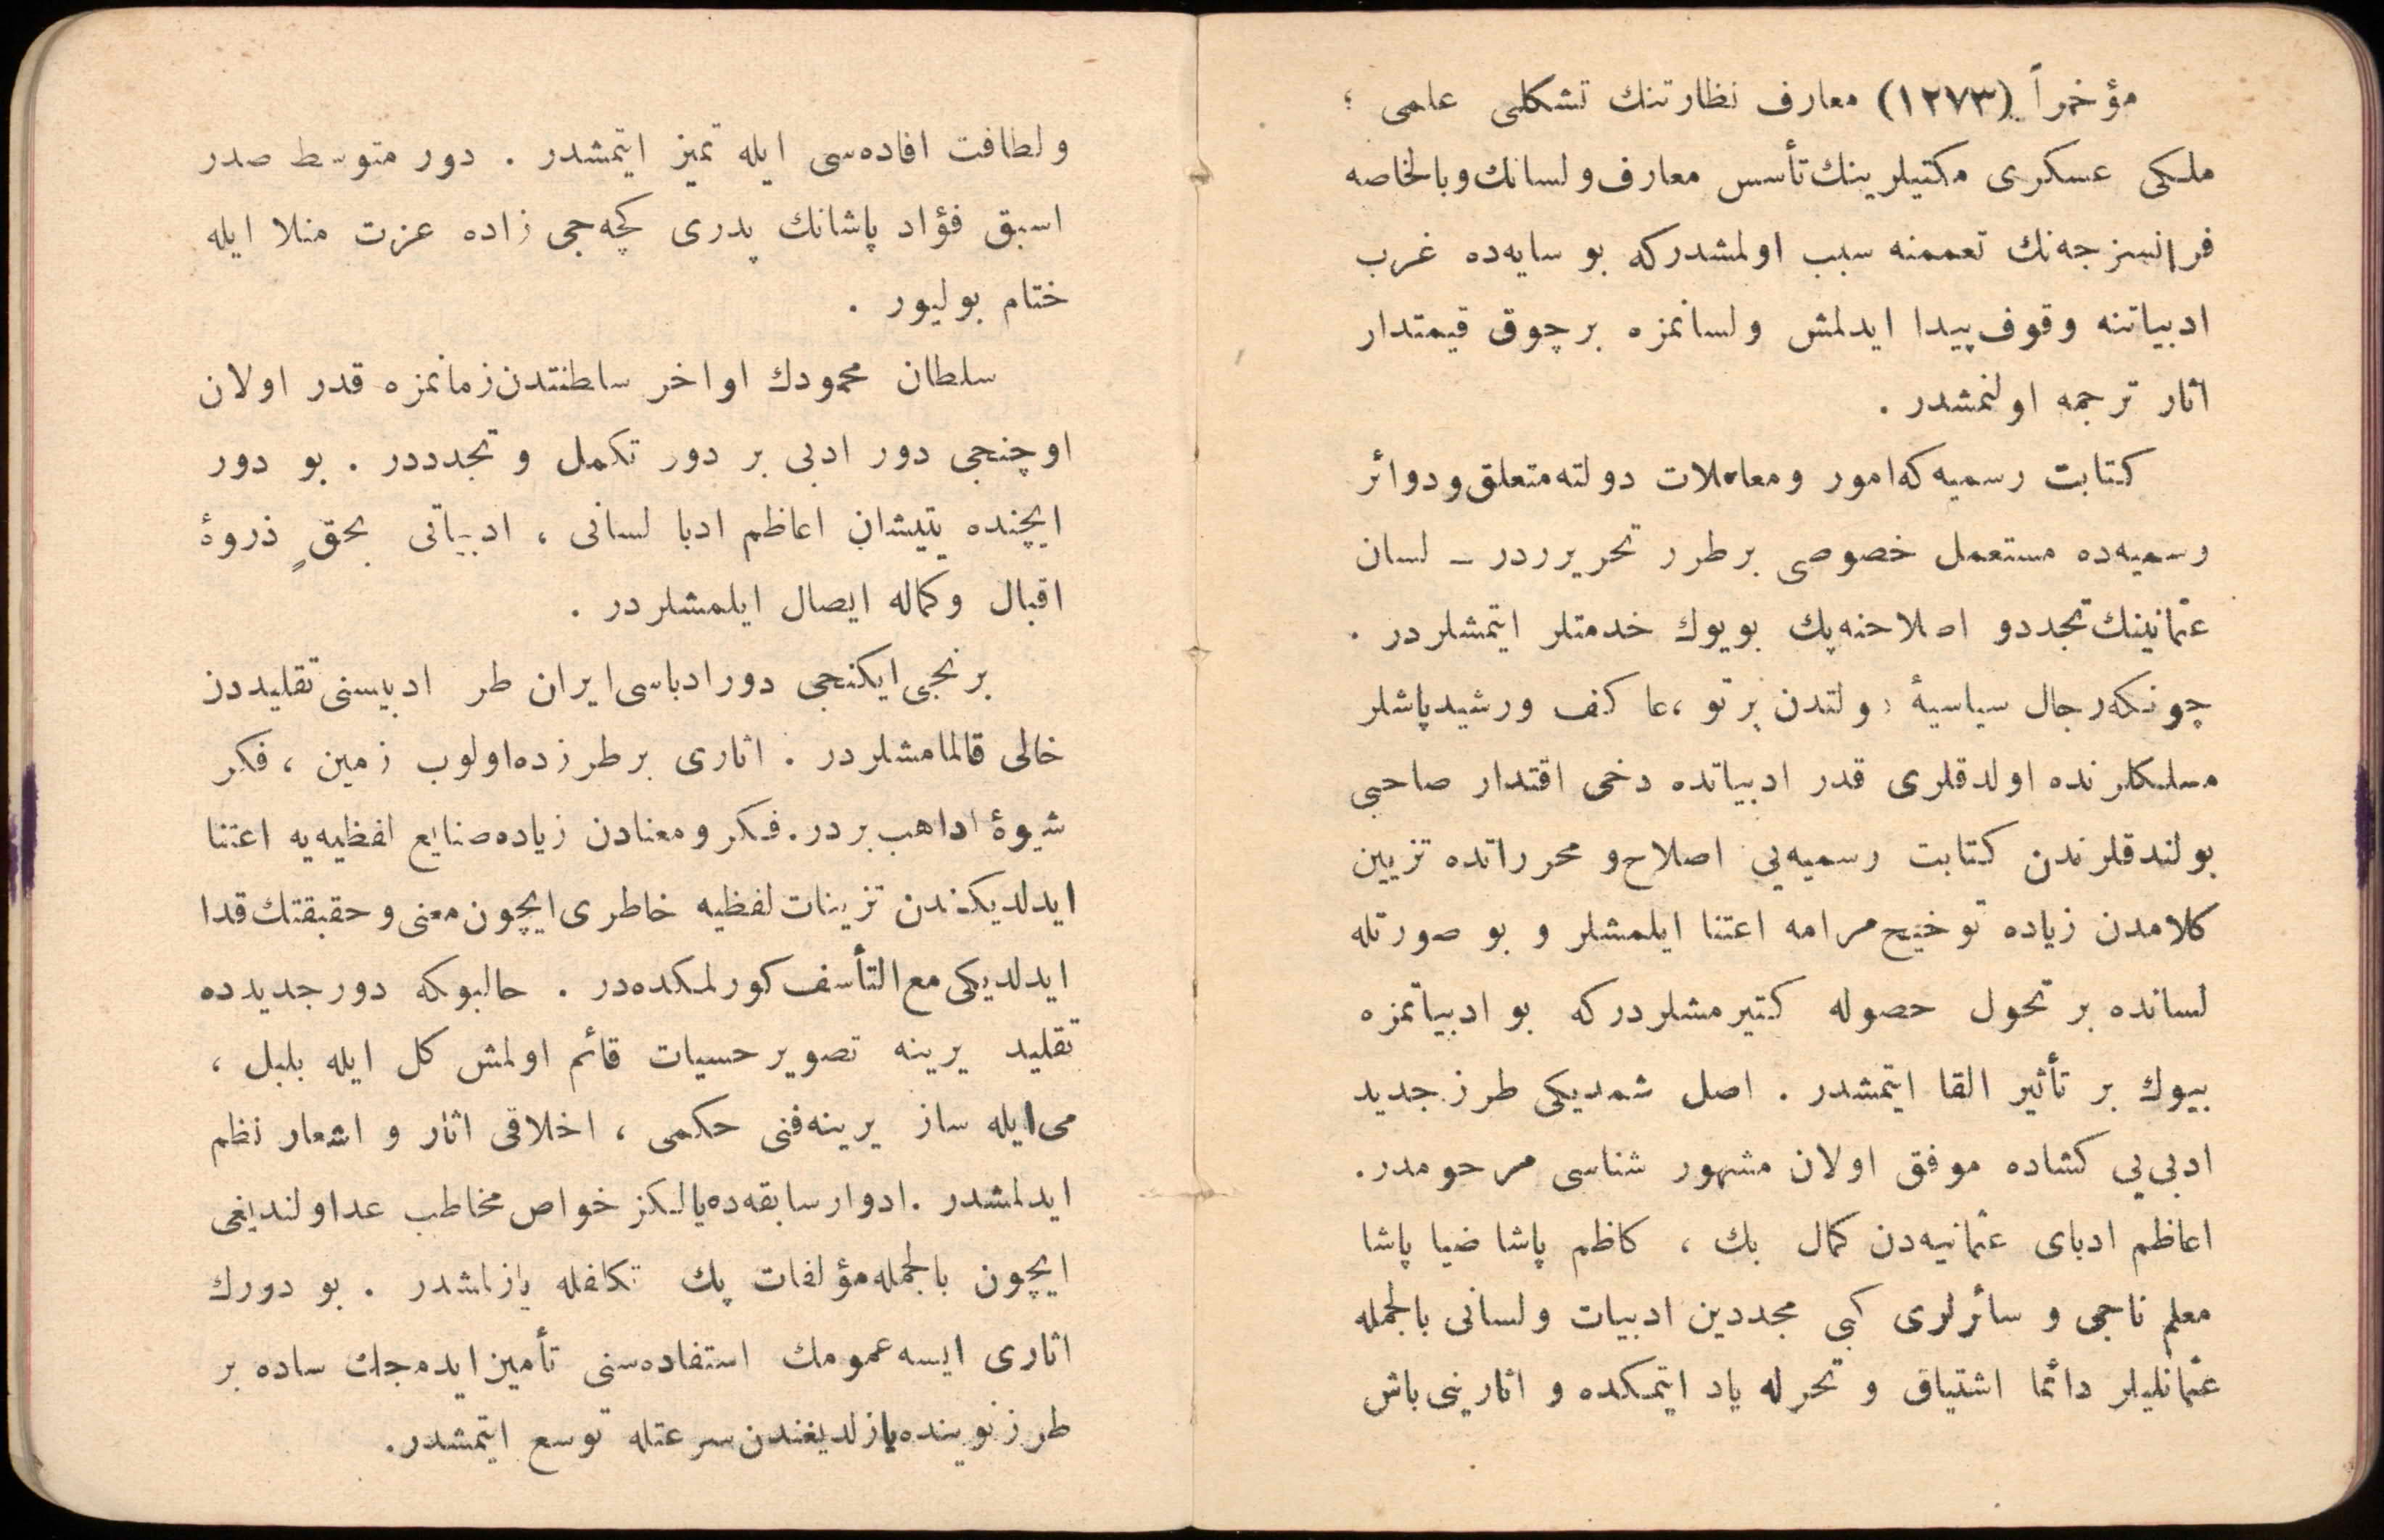 مؤخراً (١٢٧٣) معارف نظارتنك تشكلی علمی ؛
ملكی عسكری مكتبلرینك تأسس معارف ولسانك وبالخاصه
فرانسزجه‌نك تعممنه سبب اولمشدركه بو سایه‌ده غرب
ادبیاتنه وقوف پیدا ایدلمش ولسانمزه برچوق قیمتدار
اثار ترجمه اولنمشدر .
كتابت رسمیه كه امور ومعاملات دولته متعلق ودوائر
رسمیه‌ده مستعمل خصوصی برطرر تحریرردر ــ لسان
عثمانینك تجددو اصلاحنه پك بویوك خدمتلر ایتمشلردر .
چونكه رجال سیاسیهٔ دولتدن پرتو ، عاكف ورشیدپاشلر
مسلكلرنده اولدقلری قدر ادبیاتده دخی اقتدار صاحبی
بولندقلرندن كتابت رسمیه‌یی اصلاح و محرراتده تزیین
كلامدن زیاده توخیح مرامه اعتنا ایلمشلر و بو صورتله
لسانده بر تحول حصوله كتیرمشلردركه بو ادبیاتمزه
بیوك بر تأثیر القا ایتمشدر . اصل شمدیكی طرز جدید
ادبی‌یی كشاده موفق اولان مشهور شناسی مرحومدر.
اعاظم ادبای عثمانیه‌دن كمال بك ، كاظم پاشا ضیا پاشا
معلم ناجی و سائرلری كبی مجددین ادبیات ولسانی بالجمله
عثمانلیلر دائما اشتیاق و تحرله یاد ایتمكده و اثارینی باش
ولطافت افاده‌سی ایله تمیز ایتمشدر . دور متوسط صدر
اسبق فؤاد پاشانك پدری كچه‌جی زاده عزت منلا ایله
ختام بولیور .
سلطان محمودك اواخر سلطنتدن زمانمزه قدر اولان
اوچنجی دور ادبی بر دور تكمل و تجدددر . بو دور
ایچنده یتیشان اعاظم ادبا لسانی ، ادبیاتی بحقٍ ذروهٔ
اقبال وكماله ایصال ایلمشلردر .
برنجی ایكنجی دور ادباسی ایران طر ادبیسنی تقلیددن
خالی قالمامشلردر . اثاری برطرزده اولوب زمین ، فكر
شیوهٔ اداهب بردر . فكر ومعنادن زیاده صنایع لفظیه‌یه اعتنا
ایدلدیكندن تزینات لفظیه خاطری ایچون معنی وحقیقتك قدا
ایدلدیكی مع التأسف كورلمكده‌در . حالبوكه دور جدیدده
تقلید یرینه تصویر حسیات قائم اولمش كل ایله بلبل ،
می ایله ساز یرینه فنی حكمی ، اخلاقی اثار و اشعار نظم
ایدلمشدر . ادوار سابقه‌ده یالكز خواص مخاطب عد اولندیغی
ایچون بالجمله مؤلفات پك تكلفله یازلمشدر . بو دورك
اثاری ایسه عمومك استفاده‌سنی تأمین ایده‌جك ساده بر
طرزنوینده یازلدیغندن سرعتله توسع ایتمشدر.